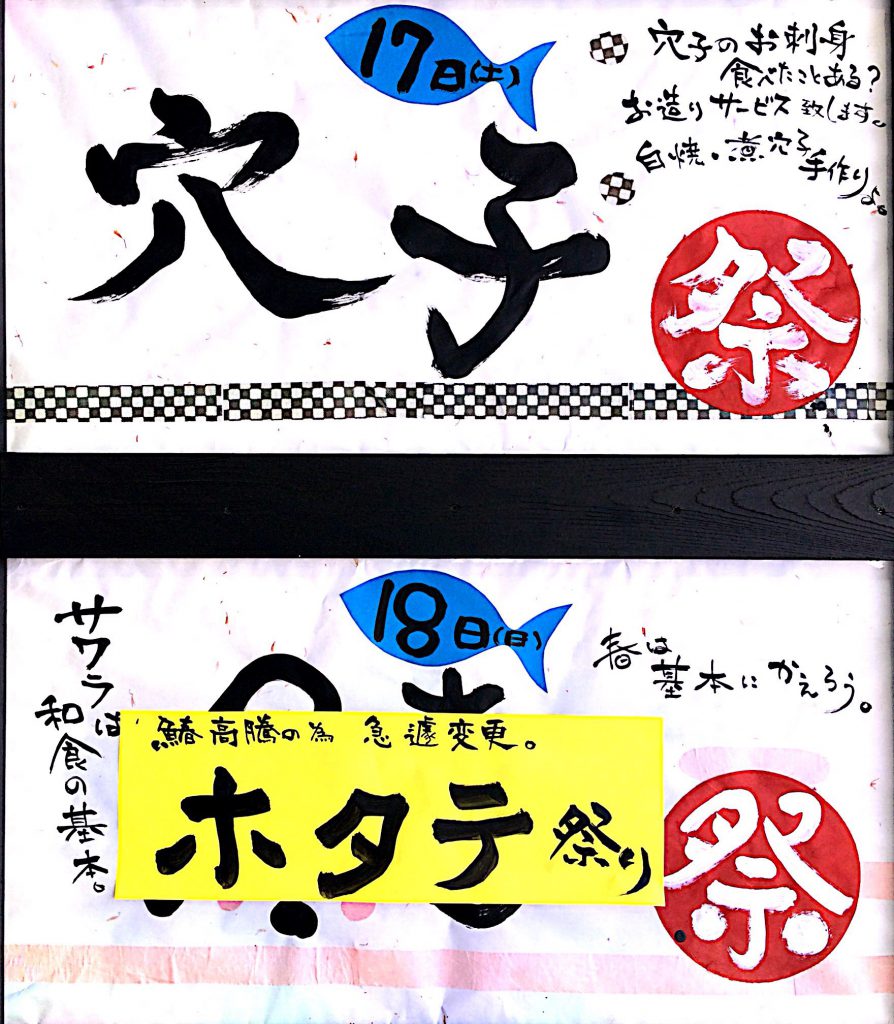 17日(土)
穴子
穴子のお刺身
食べたことある?
お造りサービス致します。
白焼・煮穴子
手作りよ。
祭
18日(日)
サワラは
和食の基本。
春は
基本にかえろう。
鰆高騰の為 急遽変更。
ホタテ祭り
祭